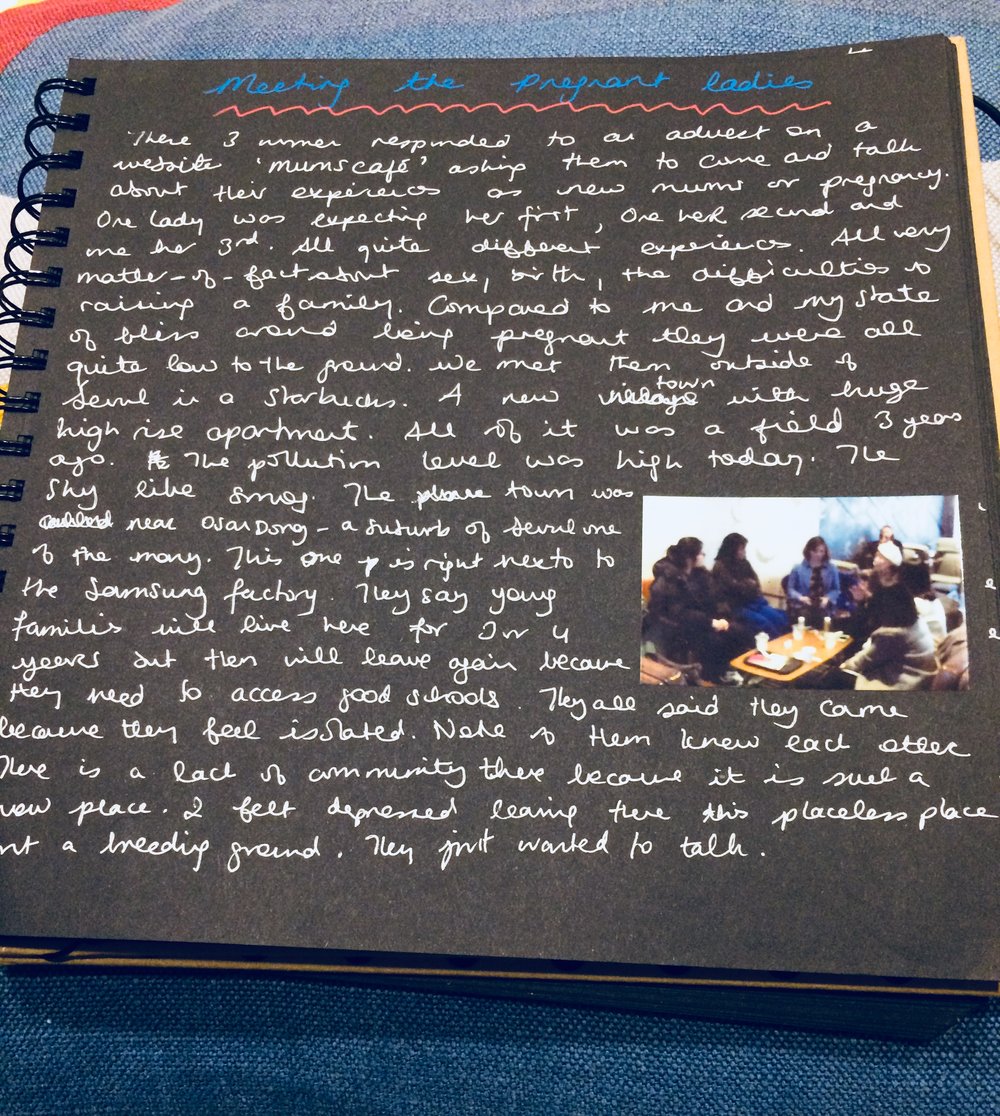 Meeting the Pregnant ladies
There 3 women responded to an advert on a
website 'mumscafé' asking them to come and talk
about their experiences as new mums or pregnancy.
One lady was expecting her first, One her second and
one her 3rd. All quite different experiences. All very
matter-of-fact about sex, birth, the difficulties of
raising a family. Compared to me and my state
of bliss around being pregnant they were all
quite low to the ground. We met them outside of
Seoul in a Starbucks. A new town with huge
high rise apartment. All of it was a field 3 years
ago. The pollution level was high today. The
Sky like smog. The town was
near Osan Dong - a suburb of Seoul one
of the many. This one is right next to
the Samsung factory. They say young
families will live here for 3 or 4
years but then will leave again because
they need to access good schools. They all said they came
because they feel isolated. None of them knew each other
There is a lack of community there because it is such a
new place. I felt depressed leaving there this placeless place
but a breeding ground. They just wanted to talk.